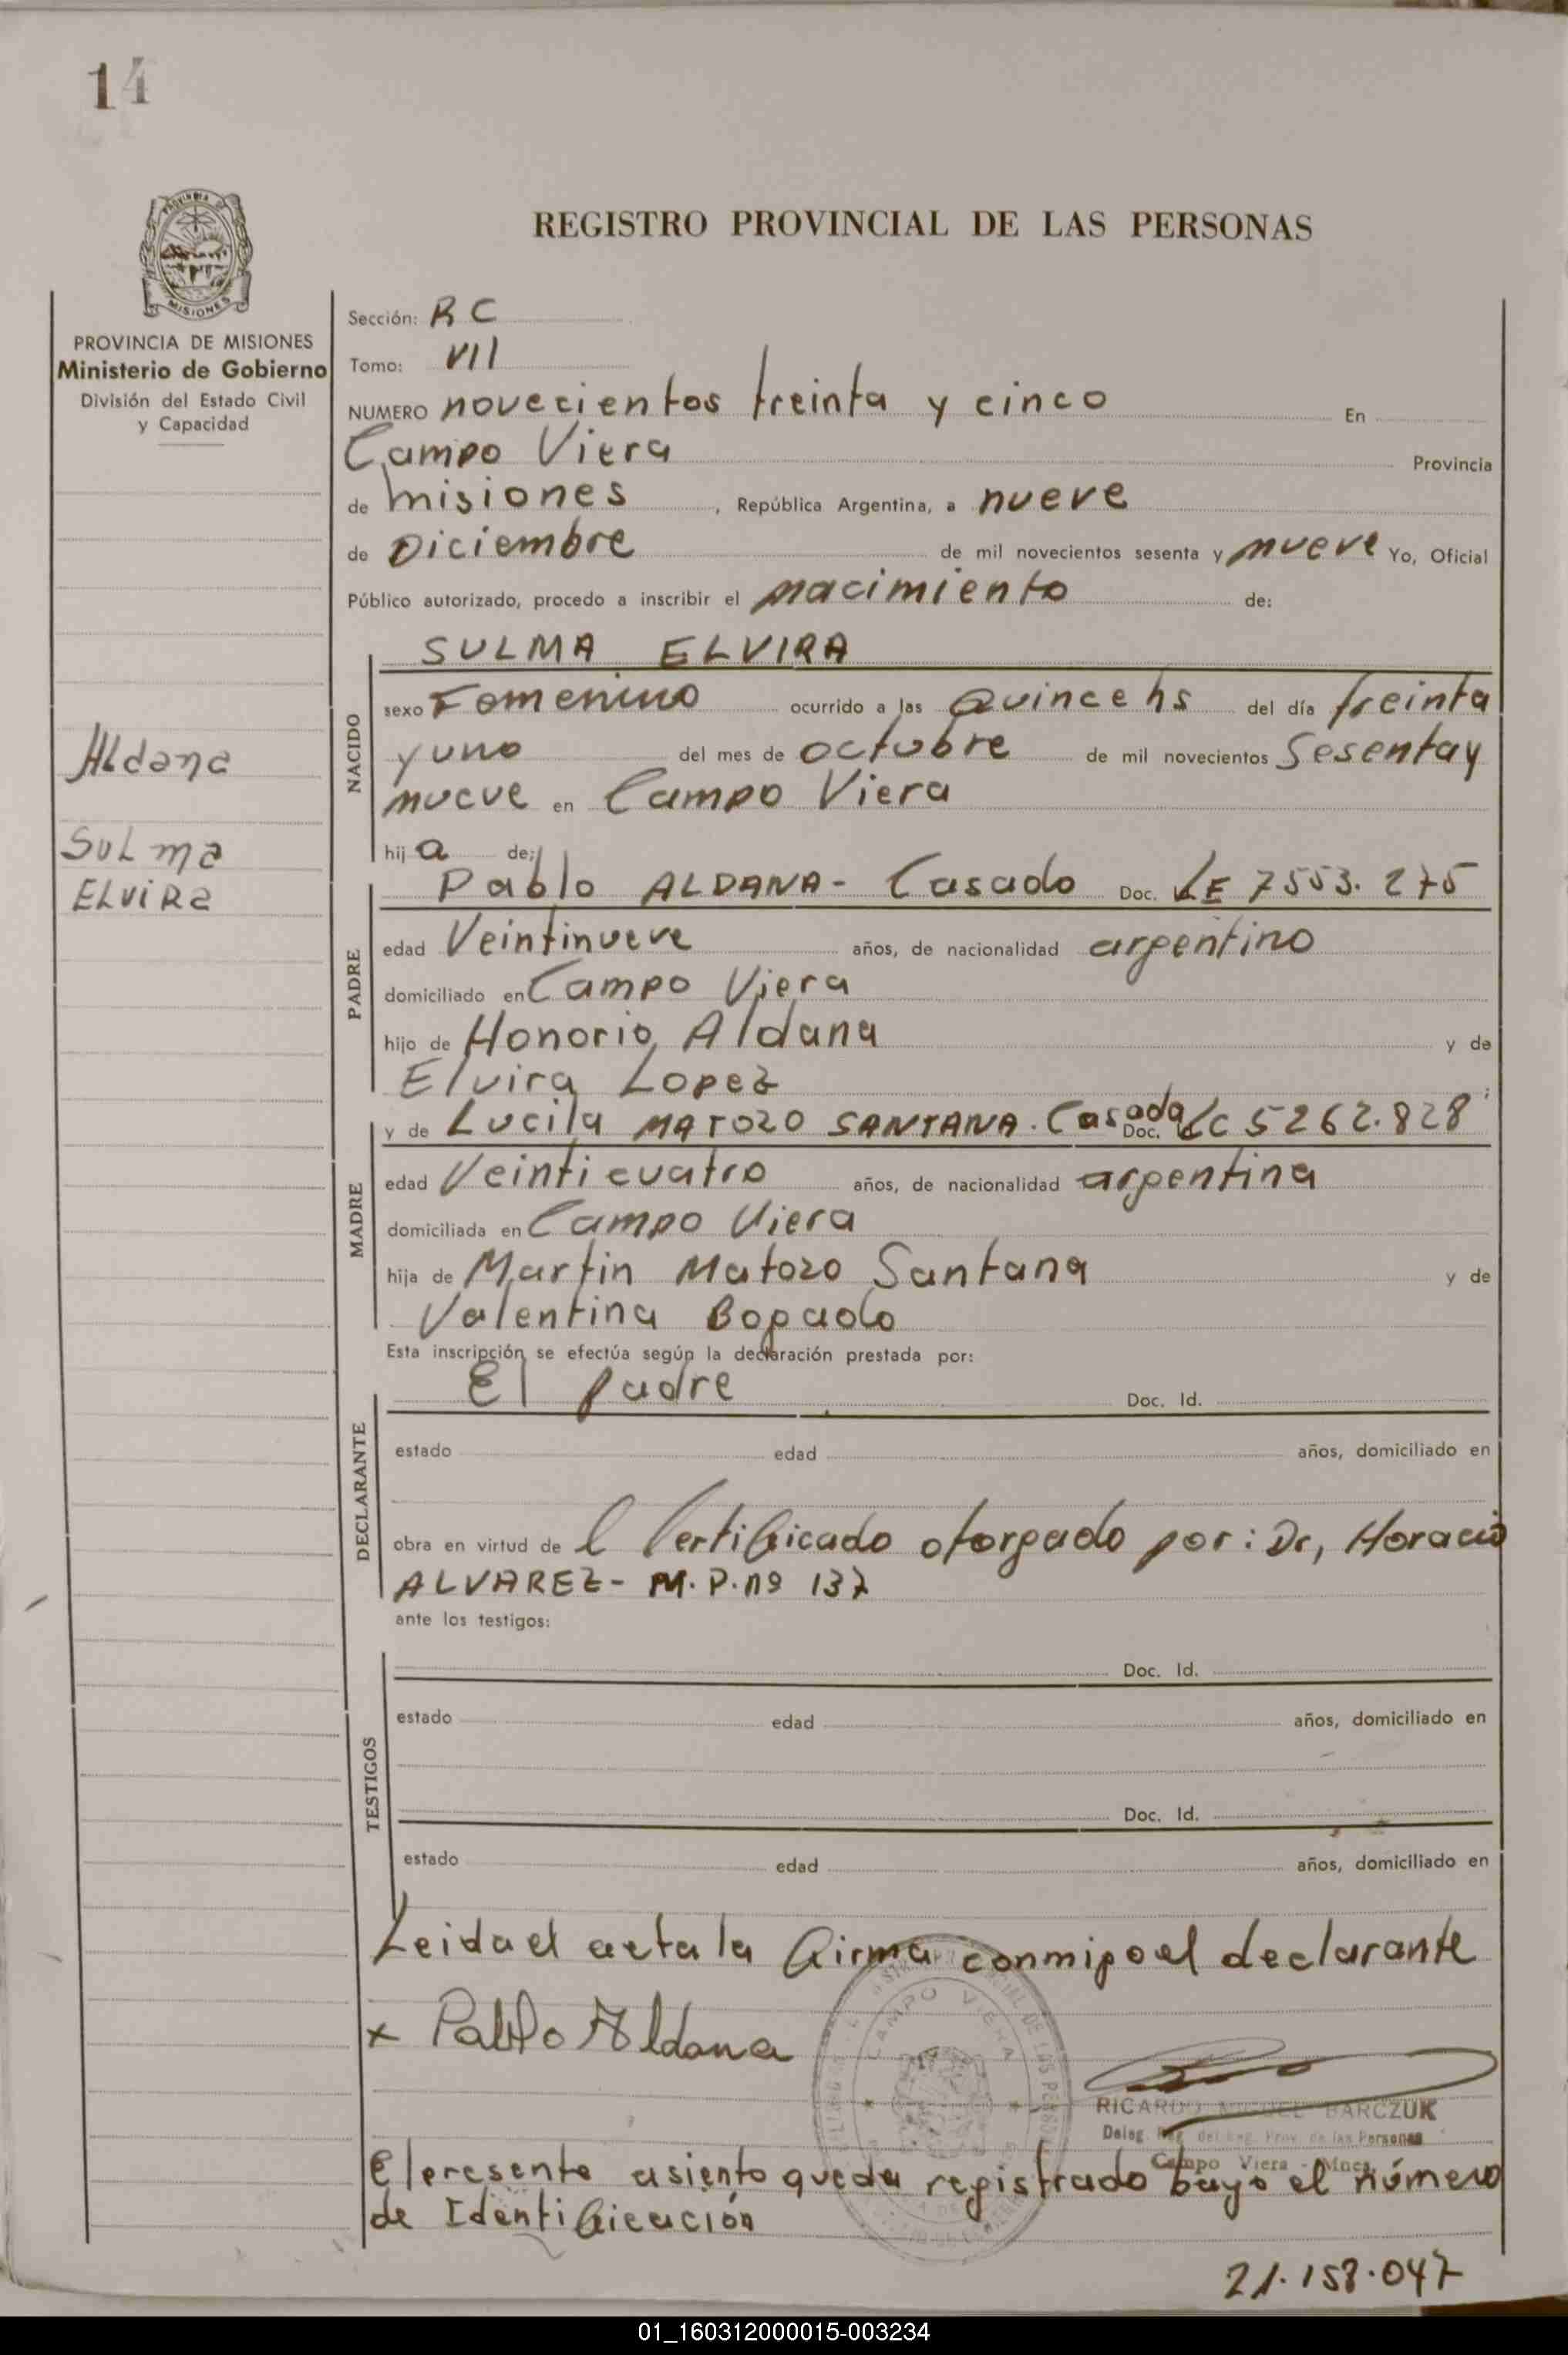 14
REGISTRO PROVINCIAL DE LAS PERSONAS
PROVINCIA DE MISIONES
Ministerio de Gobierno
División del Estado Civil
y Capacidad
Aldana
Sulma
Elvira
Sección: RC
Tomo: VII
NUMERO novecientos treinta y cinco En
Campo Viera Provincia
de misiones, República Argentina, a nueve
de Diciembre de mil novecientos sesenta y nueve Yo, Oficial
Público autorizado, procedo a inscribir el nacimiento de:
NACIDO
SULMA ELVIRA
sexo Femenino ocurrido a las Quince hs del día treinta
y uno del mes de octubre de mil novecientos Sesenta y
nueve en Campo Viera
hija de:
PADRE
Pablo ALDANA - Casado Doc. LE 7553.275
edad Veintinueve años, de nacionalidad argentino
domiciliado en Campo Viera
hijo de Honorio Aldana y de
Elvira Lopez
MADRE
y de Lucila MATOZO SANTANA. Casada Doc. LC 5262.828
edad Veinticuatro años, de nacionalidad argentina
domiciliada en Campo Viera
hija de Martin Matozo Santana y de
Valentina
Esta inscripción se efectúa según la declaración prestada por:
DECLARANTE
El padre Doc. Id.
estado edad años, domiciliado en
obra en virtud de l Certificado otorgado por: Dr, Horacio
ALVAREZ - M.P. nº 137
ante los testigos:
TESTIGOS
Doc. Id.
estado edad años, domiciliado en
Doc. Id.
estado edad años, domiciliado en
Leida el acta la firma conmigo el declarante
x Pablo Aldana
CAMPO VIERA
RICARDO MIGUEL BARCZUK
Deleg. Reg. del Reg. Prov. de las Personas
Campo Viera - Mnes.
El presente asiento queda registrado bajo el número
de Identificación
21.158.047
01_160312000015-003234